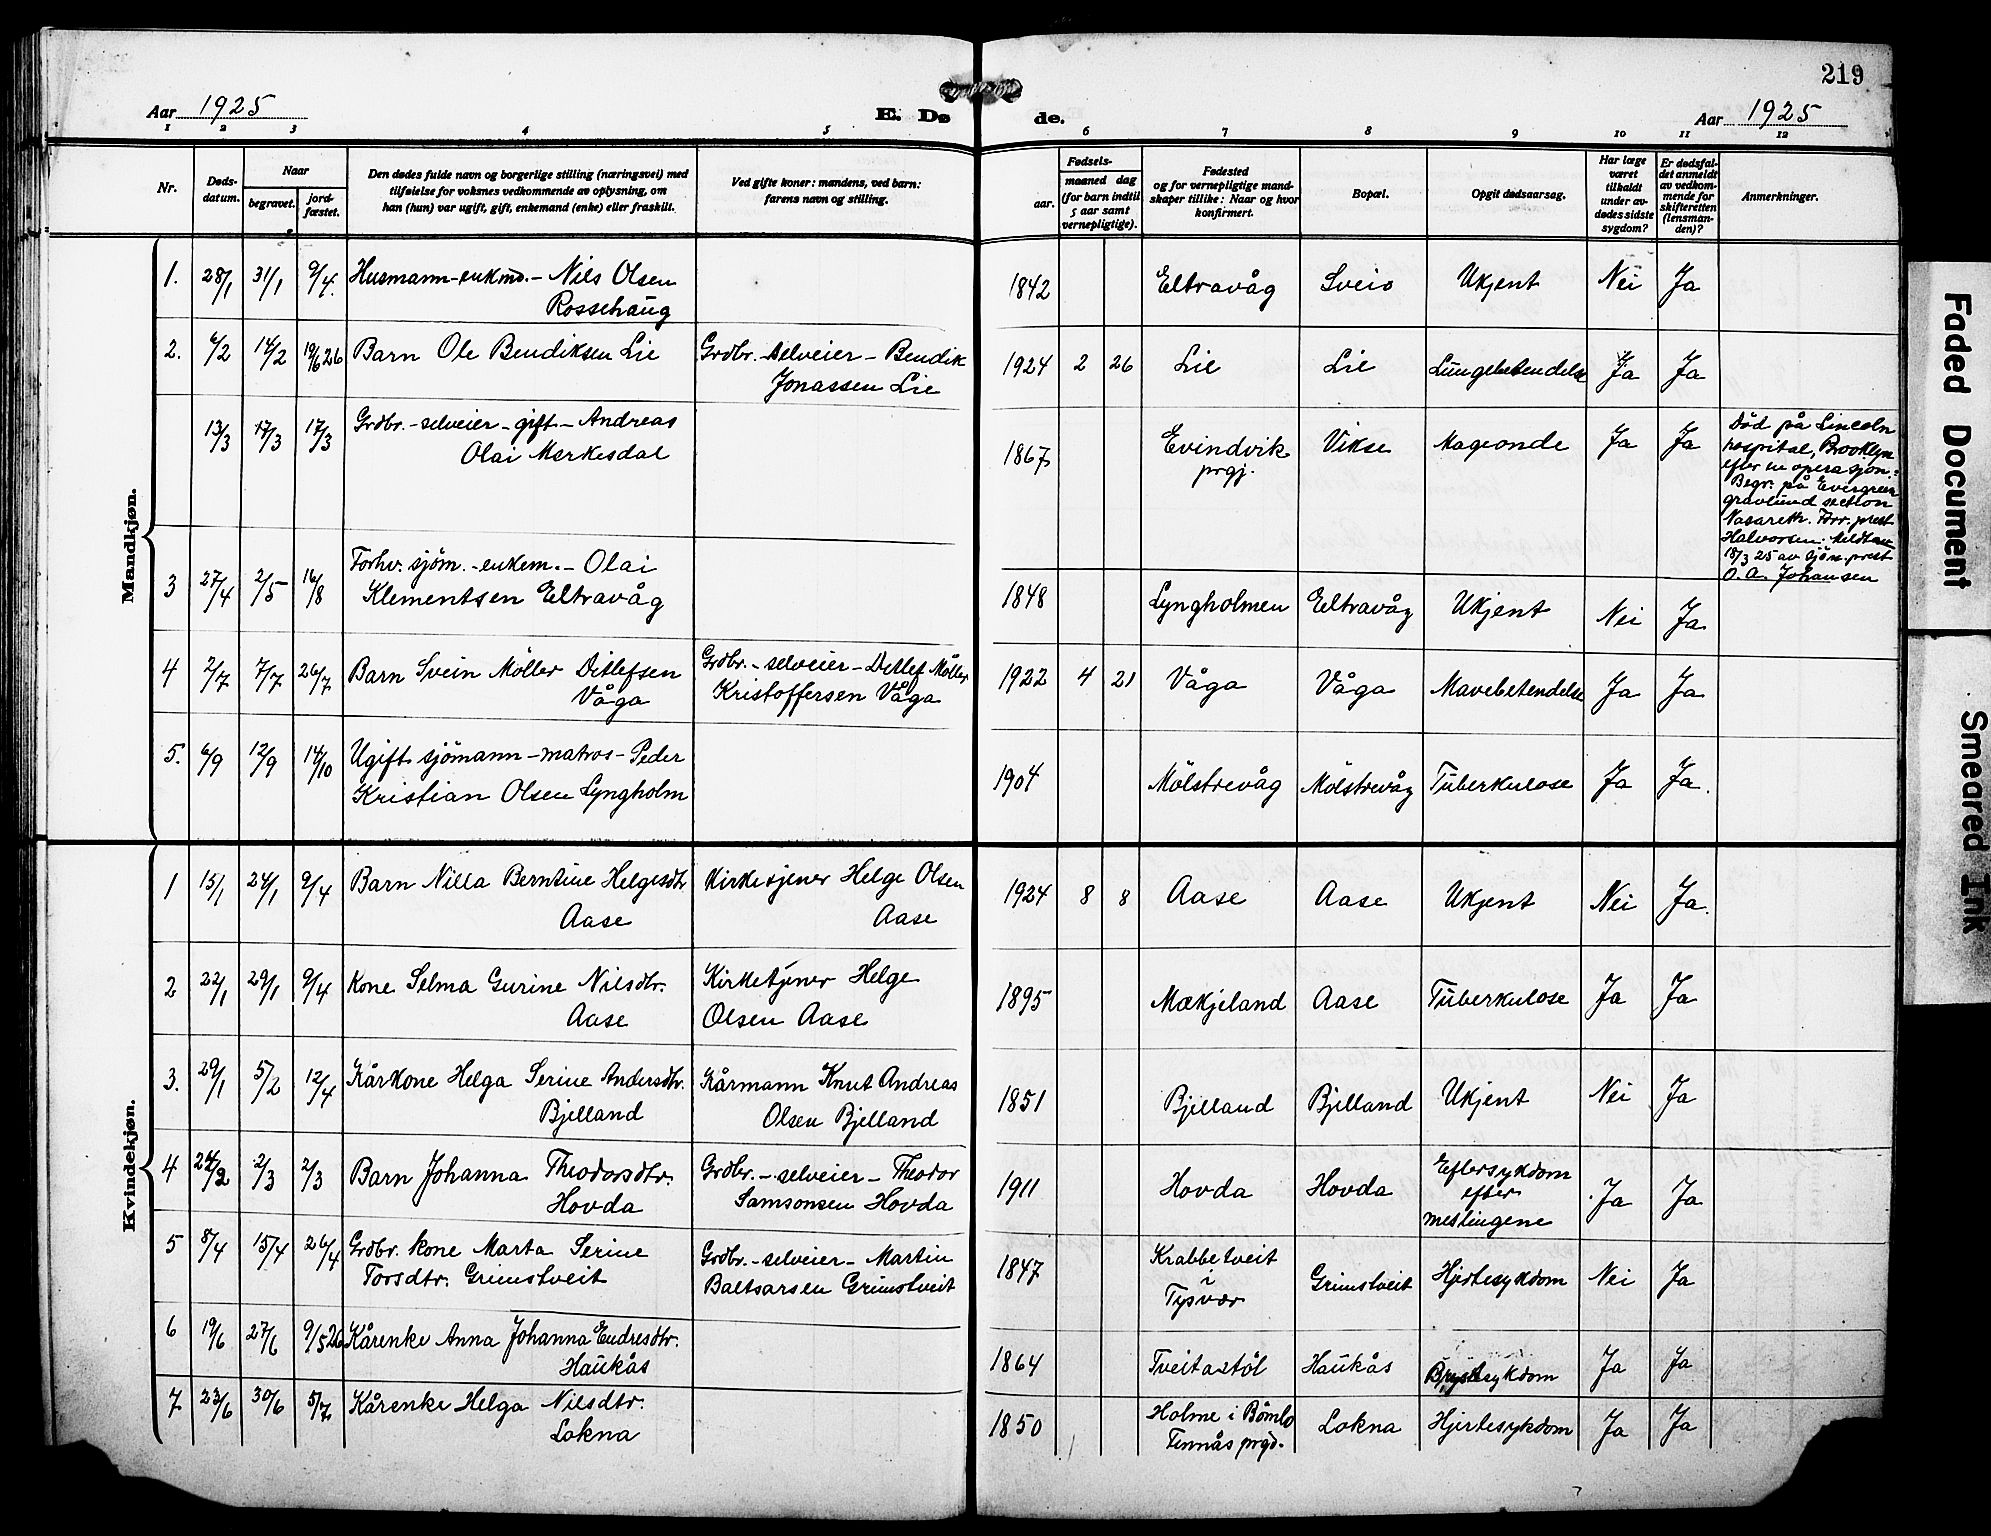 219
Aar 1925
E. Dø
de.
Aar 1925
1 2 3 4 5 6 7 8 9 10 11 12
Nr.
Døds-
datum.
Naar
begravet.
jord-
fæstet.
Den dødes fulde navn og borgerlige stilling (næringsvei) med
tilføielse for voksnes vedkommende av oplysning, om
han (hun) var ugift, gift, enkemand (enke) eller fraskilt.
Ved gifte koner: mandens, ved barn:
farens navn og stilling.
Fødsels-
aar.
maaned dag
(for barn indtil
5 aar samt
vernepligtige).
Fødested
og for vernepligtige mand-
skaper tillike: Naar og hvor
konfirmert.
Bopæl.
Opgit dødsaarsag.
Har læge
været
tilkaldt
under av-
dødes sidste
sygdom?
Er dødsfal-
det anmeldt
av vedkom-
mende for
skifteretten
(lensman-
den)?
Anmerkninger.
Mandkjøn.
1. 28/1 31/1 9/4. Husmann-enkmd.- Nils Olsen
Rossehaug
1842 Eltravåg Sveio Ukjent Nei Ja
2. 6/2 14/2 19/6 26 Barn Ole Bendiksen Lie
Grdbr.-selveier-Bendik
Jonassen Lie
1924 2 26 Lie Lie Lungebetendelse Ja Ja
13/3 17/3 17/3 Grdbr.-selveier-gift-Andreas
Olai Merkesdal
1867 Evindvik
prgj.
Vikse Maveonde Ja Ja
Död på Lincoln
hospital, Brooklyn
efter en operasjon.
Begr. på Evergreen
gravlund section
Nasareth. Forr. prest
Halvorsen. Meldt
18/3 25 av sjöm. prest
O. A. Johansen
3 27/4 2/5 16/8 Forhv. sjöm.-enkem.- Olai
Klementsen Eltravåg
1848 Lyngholmen Eltravåg Ukjent Nei Ja
4 2/7 7/7 26/7 Barn Svein Möller Ditlefsen
Våga
Grdbr.-selveier-Detlef Möller
Kristoffersen Våga
1922 4 21 Våga Våga Mavebetendelse Ja Ja
5. 6/9 12/9 14/10 Ugift sjömann-matros-Peder
Kristian Olsen Lyngholm
1904 Mölstrevåg Mölstrevåg Tuberkulose Ja Ja.
Kvindekjøn.
1 15/1 24/1 9/4 Barn Nilla Berntine Helgesdtr
Aase
Kirketjener Helge Olsen
Aase
1924 8 8 Aase Aase Ukjent Nei Ja.
2 22/1 29/1 9/4 Kone Selma Gurine Nilsdtr.
Aase
Kirketjener Helge
Olsen Aase
1895 Mækjeland Aase Tuberkulose Ja Ja
3. 29/1 5/2 12/4 Kårkone Helga Serine Andersdtr.
Bjelland
Kårmann Knut Andreas
Olsen Bjelland
1851 Bjelland Bjelland Ukjent Nei Ja
4 24/2 2/3 2/3 Barn Johanna Theodorsdtr.
Hovda
Grdbr.-selveier-Theodor
Samsonsen Hovda
1911 Hovda Hovda Eftersykdom
efter
meslingene
Ja Ja
5 8/4 15/4 26/4 Grdbr. kone Marta Serine
Torsdtr. Grimstveit
Grdbr.-selveier-Martin
Baltsarsen Grimstveit
1847 Krabbetveit
i
Tysvær
Grimstveit Hjertesykdom Nei Ja
6 19/6 27/6 9/5 26 Kårenke Anna Johanna Endresdtr.
Haukås
1864 Tveitastöl Haukås Brystsykdom Ja Ja
7 23/6 30/6 5/7 Kårenke Helga Nilsdtr.
Lokna
1850 Holme i Bömlo
Finnås prgd.
Lokna Hjertesykdom Ja Ja
Faded Document
Smeared Ink